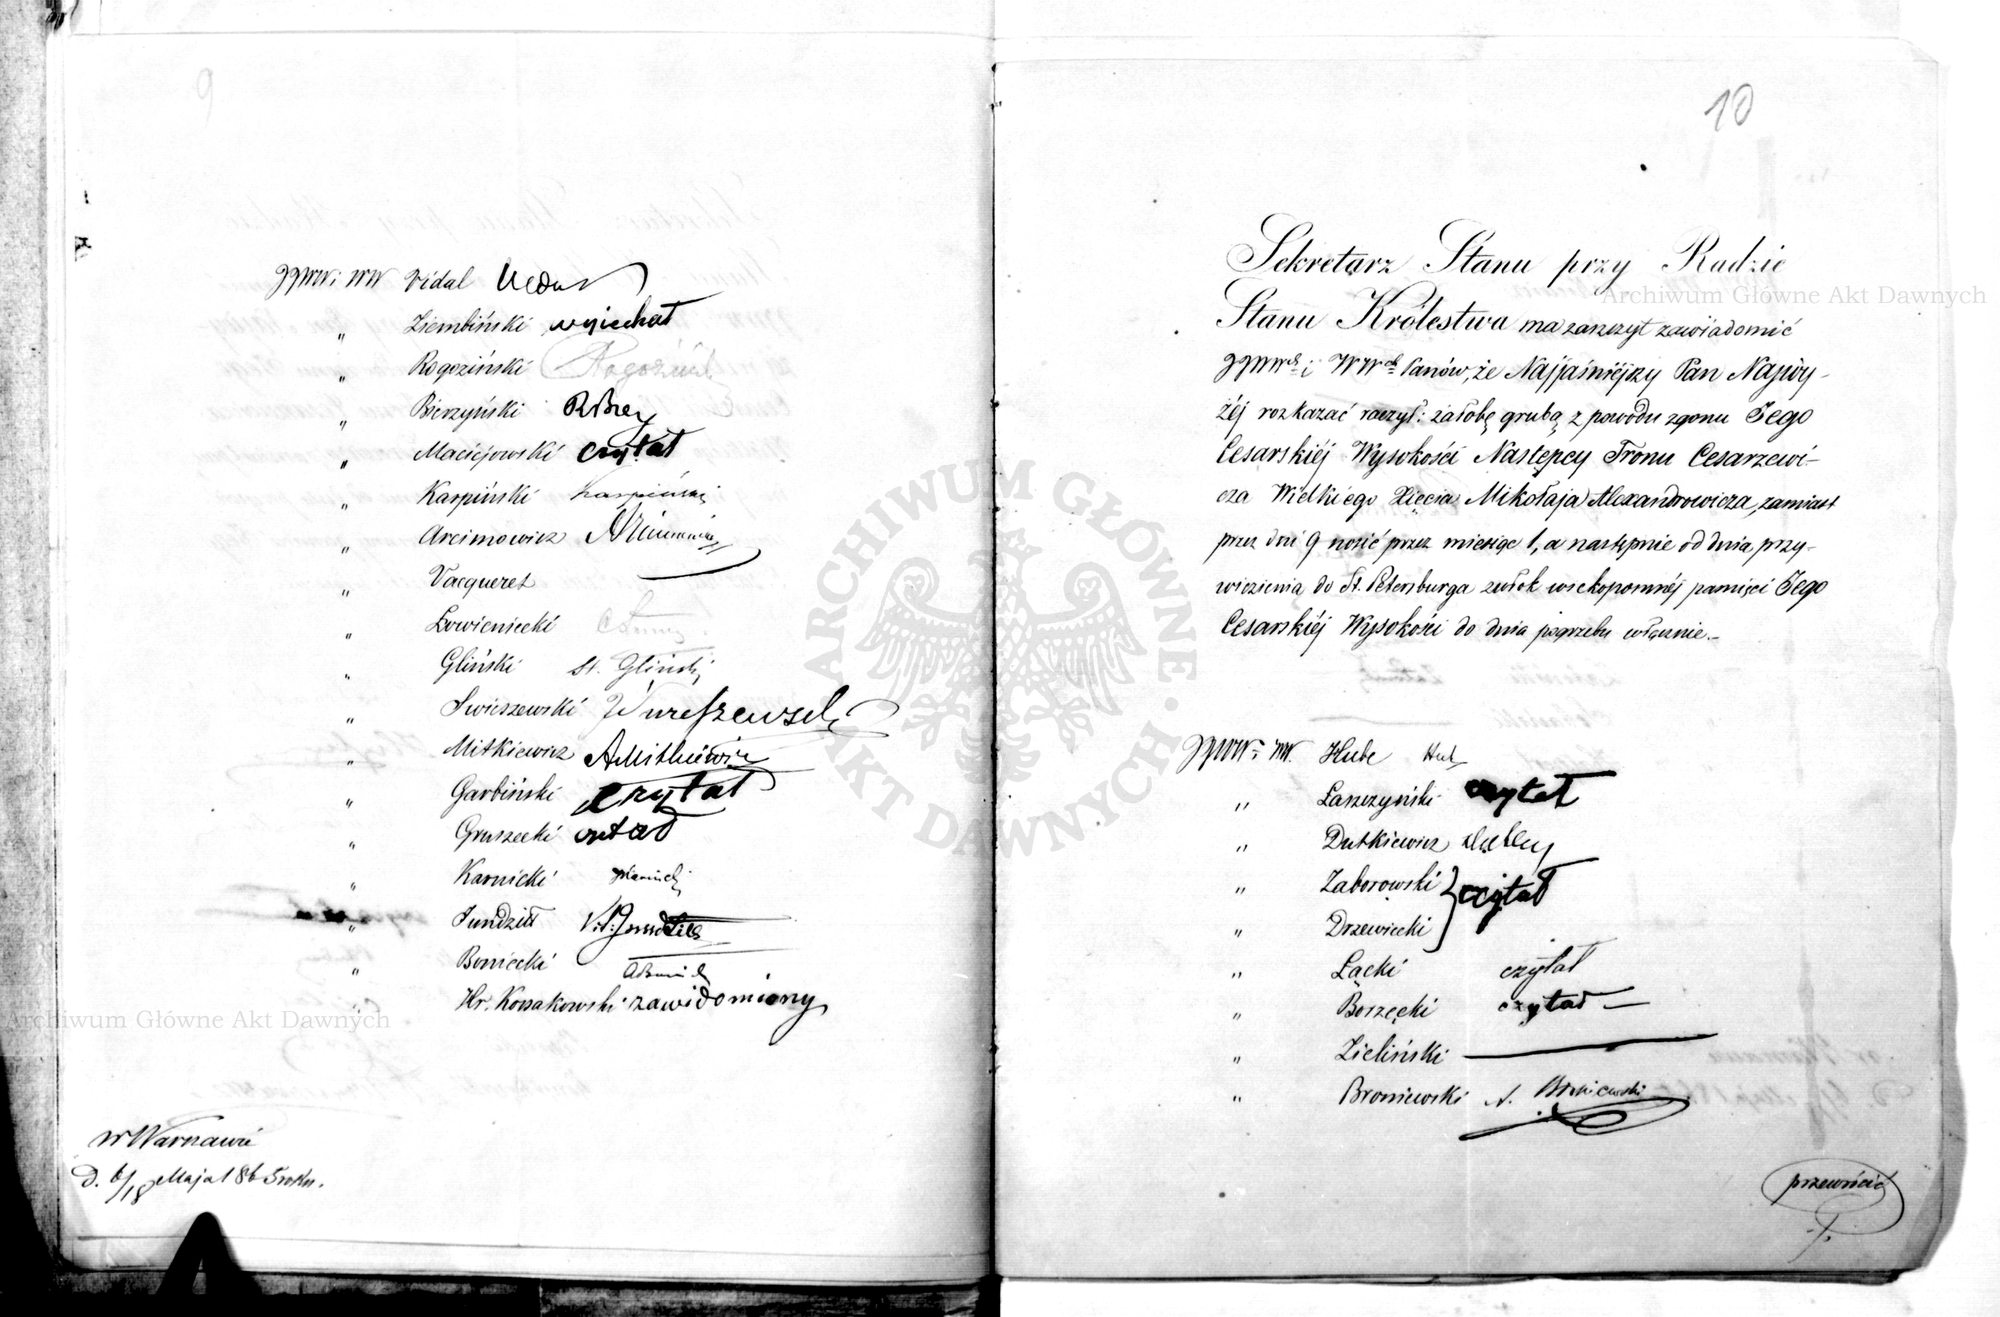 9
JJWW: WW Vidal
„ Ziembiński wyjechał
„ Rogoziński Rogoziński
„ Bierzyński
„ Maciejowski czytał
„ Karpiński Karpiński
„ Arcimowicz
„ Vacqueret
„ Łowieniecki
„ Gliński St. Gliński
„ Swieszewski
„ Mitkiewicz AMitkiewicz
„ Garbiński czytał
„ Gruszecki czytał
„ Karnicki Karnicki
„ Jundziłł
„ Boniecki
„ Hr. Kossakowski zawiadomiony
w Warszawie
d. 6/18 Maja 1865 roku.
10
Sekretarz Stanu przy Radzie
Stanu Królestwa ma zaszczyt zawiadomić
JJWWch i WWch Panów, że Najjaśniéjszy Pan Najwy-
żéj rozkazać raczył: żałobę grubą z powodu zgonu Jego
Cesarskiéj Wysokości Następcy Tronu Cesarzewi-
cza Wielkiego Xięcia Mikołaja Alexandrowicza, zamiast
przez dni 9 nosić przez miesiąc 1, a następnie od dnia przy-
wiezienia do St. Petersburga zwłok wiekopomnéj pamięci Jego
Cesarskiéj Wysokości do dnia pogrzebu włącznie.—
JJWW: WW. Hube Hube
„ Łaszczyński czytał
„ Dutkiewicz
„ Zaborowski } czytał
„ Drzewiecki
„ Łącki czytał
„ Borzęcki czytał —
„ Zieliński —
„ Broniewski A. Broniewski
przewrócić
Archiwum Główne Akt Dawnych
Archiwum Główne Akt Dawnych
ARCHIWUM GŁÓWNE AKT DAWNYCH